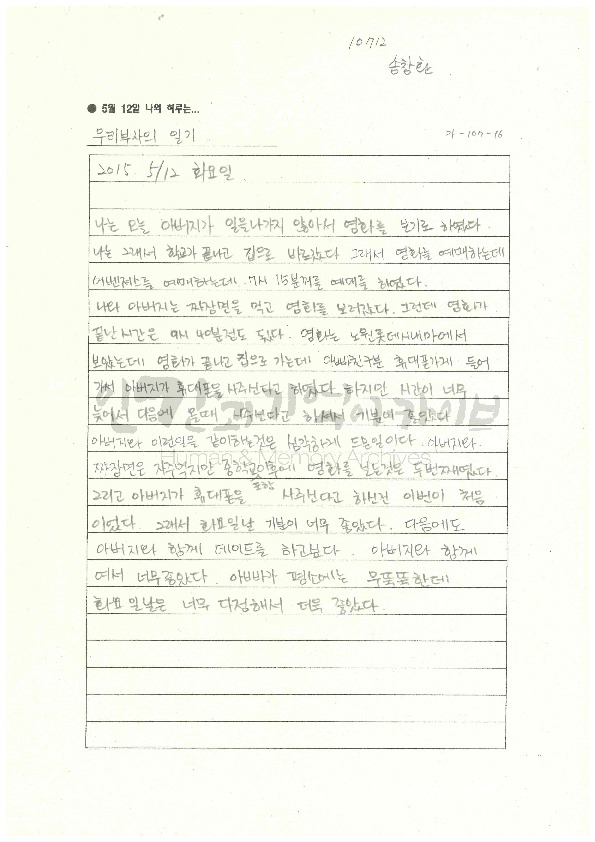 10712
송창환
● 5월 12일 나의 하루는...
무리부사의 일기
가-107-16
2015 5/12 화요일
나는 오늘 아버지가 일을나가지 않아서 영화를 보기로 하였다.
나는 그래서 학교가 끝나고 집으로 바로갔다 그래서 영화를 예매하는데
어벤져스를 예매하는데 7시 15분꺼를 예매를 하였다.
나와 아버지는 짜장면을 먹고 영화를 보러갔다. 그런데 영화가
끝난시간은 9시 40분정도 됬다. 영화는 노원롯데시네마에서
보았는데 영화가 끝나고 집으로 가는데 아빠친구분 휴대폰가게 들어
가서 아버지가 휴대폰을 사주신다고 하였다 하지만 시간이 너무
늦어서 다음에 올때 사주신다고 하셔서 기분이 좋았다
인간과기억아카이브
Human & Memory Archives
아버지와 이런일을 같이하는것은 심각하게 드문일이다. 아버지와
짜장면은 자주먹지만 중학교이후에 영화를 본것은 두번째였다
그리고 아버지가 휴대폰을 사주신다고 하신건 이번이 처음
이었다. 그래서 화요일날 기분이 너무 좋았다. 다음에도
아버지와 함께 데이트를 하고싶다. 아버지와 함께
여서 너무좋았다. 아빠가 평소에는 무뚝뚝한데
화요일날은 너무 다정해서 더욱 좋았다.